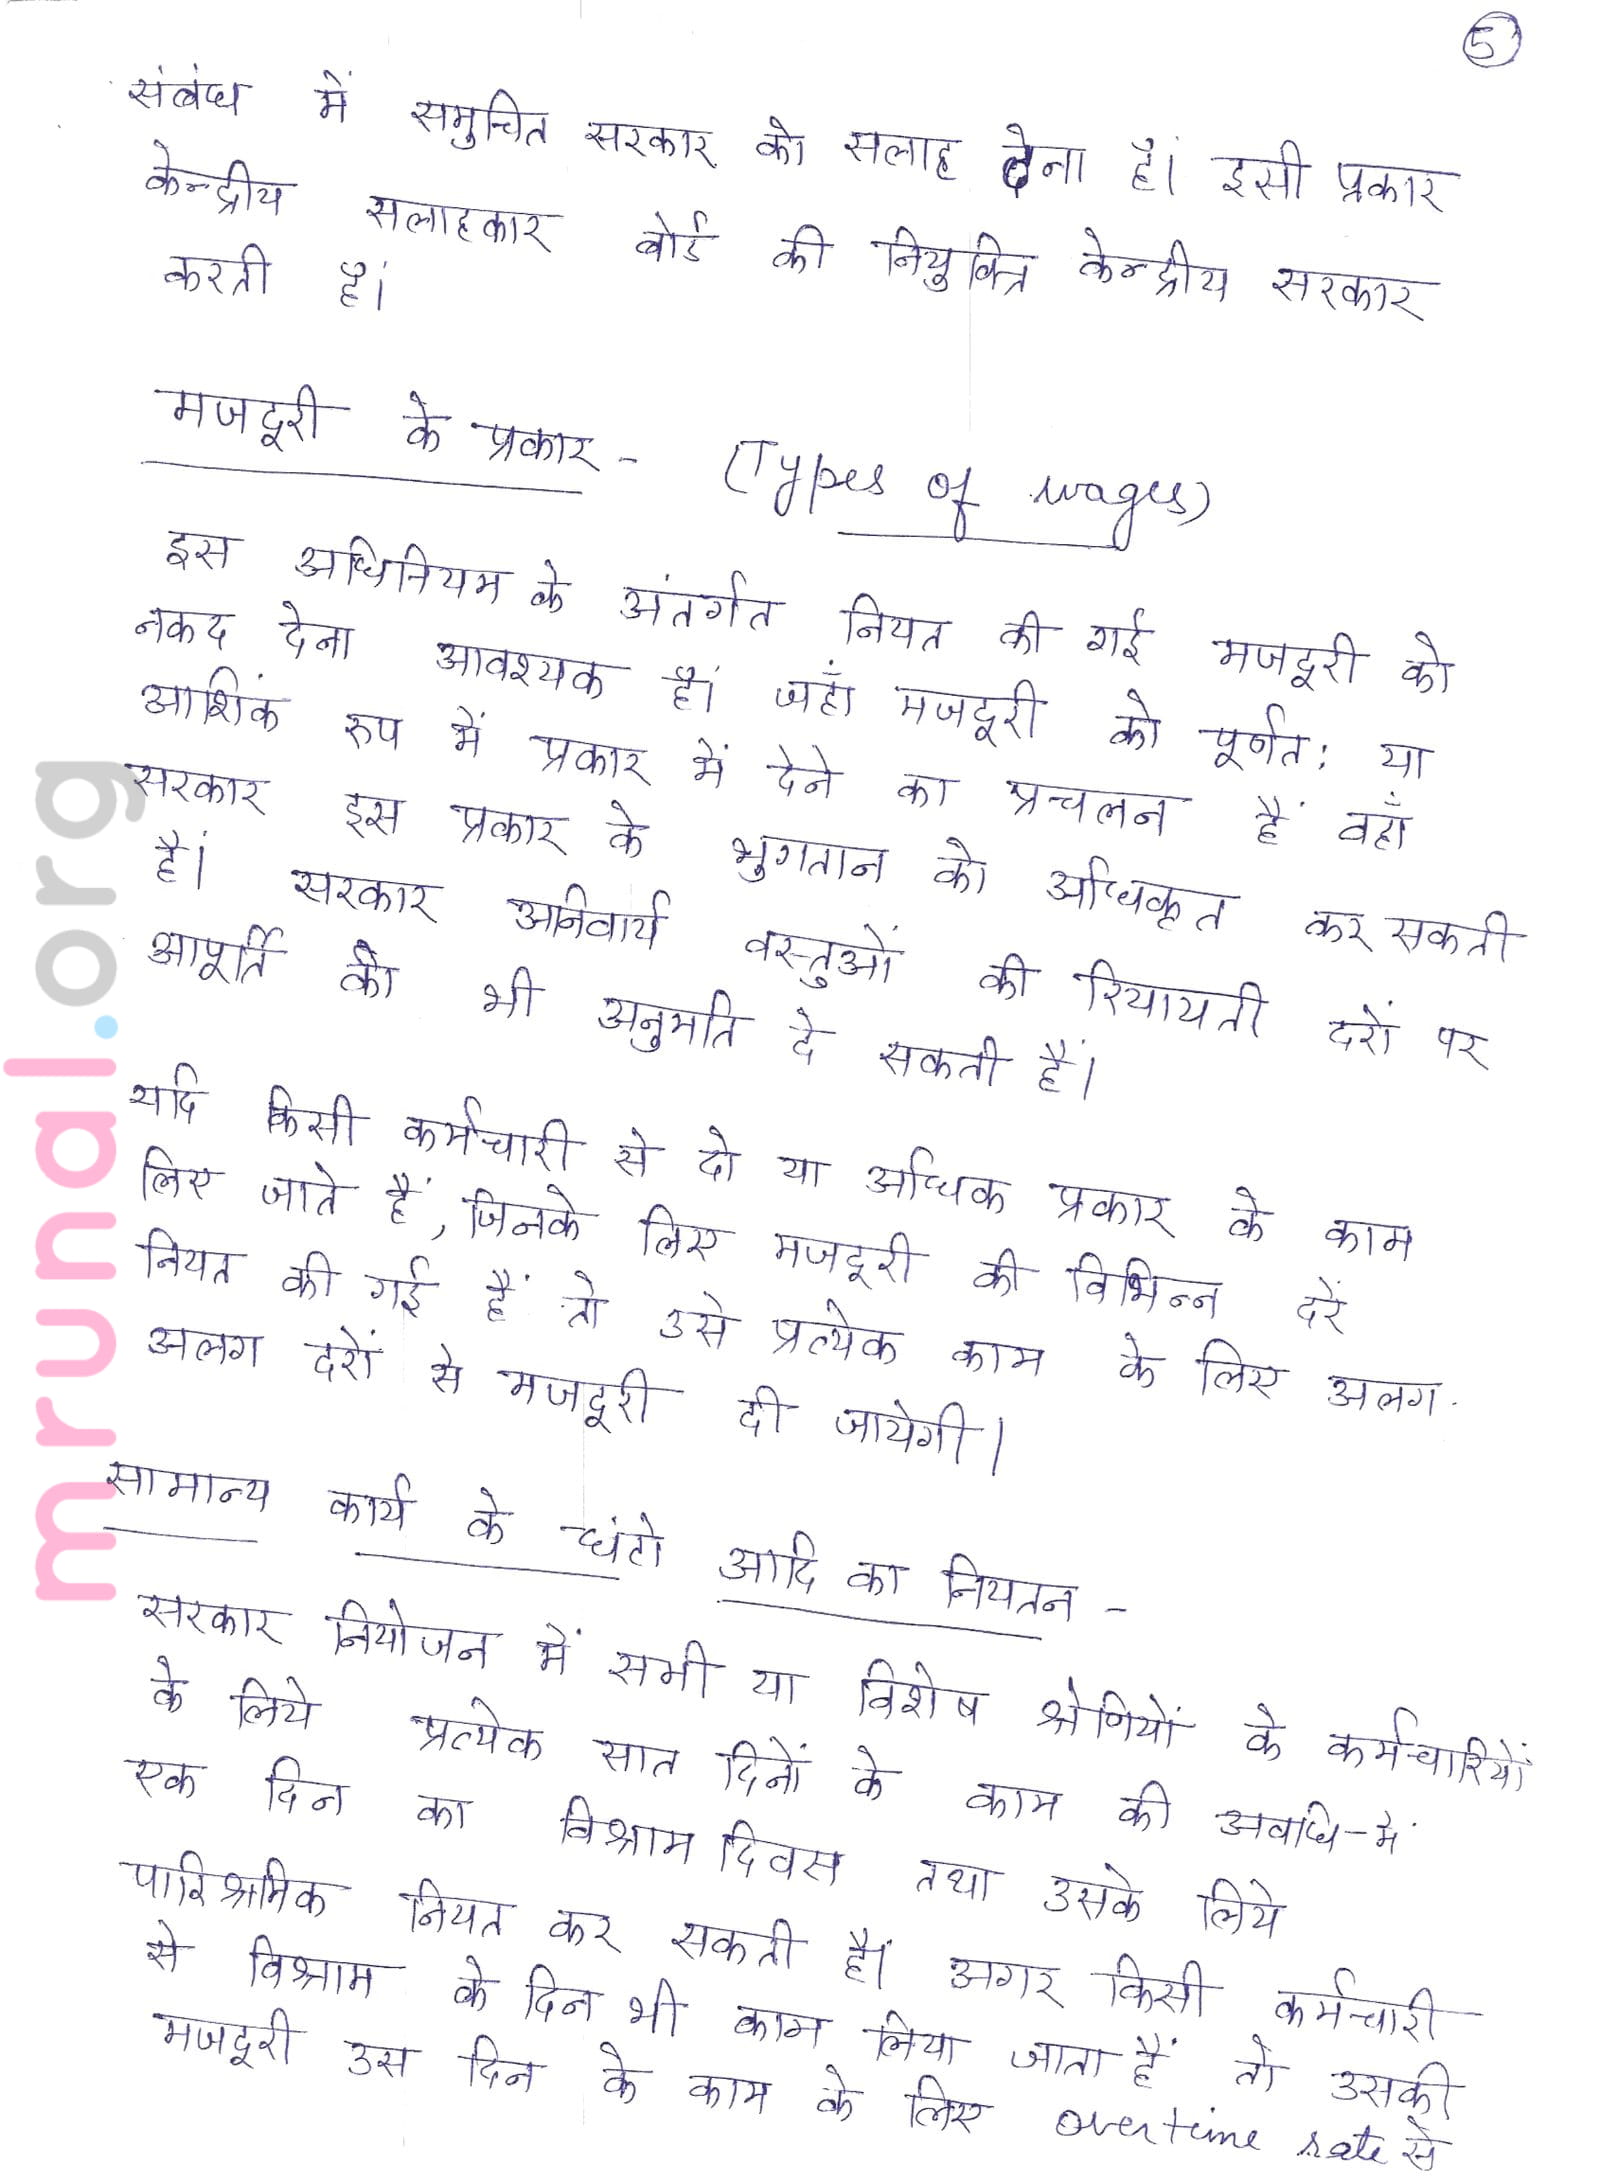 5
संबंध में समुचित सरकार को सलाह देना हैं। इसी प्रकार
केन्द्रीय सलाहकार बोर्ड की नियुक्ति केन्द्रीय सरकार
करती हैं।
मजदूरी के प्रकार - (Types of wages)
इस अधिनियम के अंतर्गत नियत की गई मजदूरी को
नकद देना आवश्यक हैं। जहाँ मजदूरी को पूर्णत: या
आशिंक रुप में प्रकार में देने का प्रचलन हैं वहाँ
सरकार इस प्रकार के भुगतान को अधिकृत कर सकती
हैं। सरकार अनिवार्य वस्तुओं की रियायती दरों पर
आपूर्ति की भी अनुमति दे सकती हैं।
यदि किसी कर्मचारी से दो या अधिक प्रकार के काम
लिए जाते हैं, जिनके लिए मजदूरी की विभिन्न दरें
नियत की गई हैं तो उसे प्रत्येक काम के लिए अलग
अलग दरों से मजदूरी दी जायेगी।
सामान्य कार्य के घंटो आदि का नियतन -
सरकार नियोजन में सभी या विशेष श्रेणियों के कर्मचारियों
के लिये प्रत्येक सात दिनों के काम की अवधि-में
एक दिन का विश्राम दिवस तथा उसके लिये
पारिश्रमिक नियत कर सकती हैं। अगर किसी कर्मचारी
से विश्राम के दिन भी काम लिया जाता हैं तो उसकी
मजदूरी उस दिन के काम के लिए overtime rate से
mrunal.org